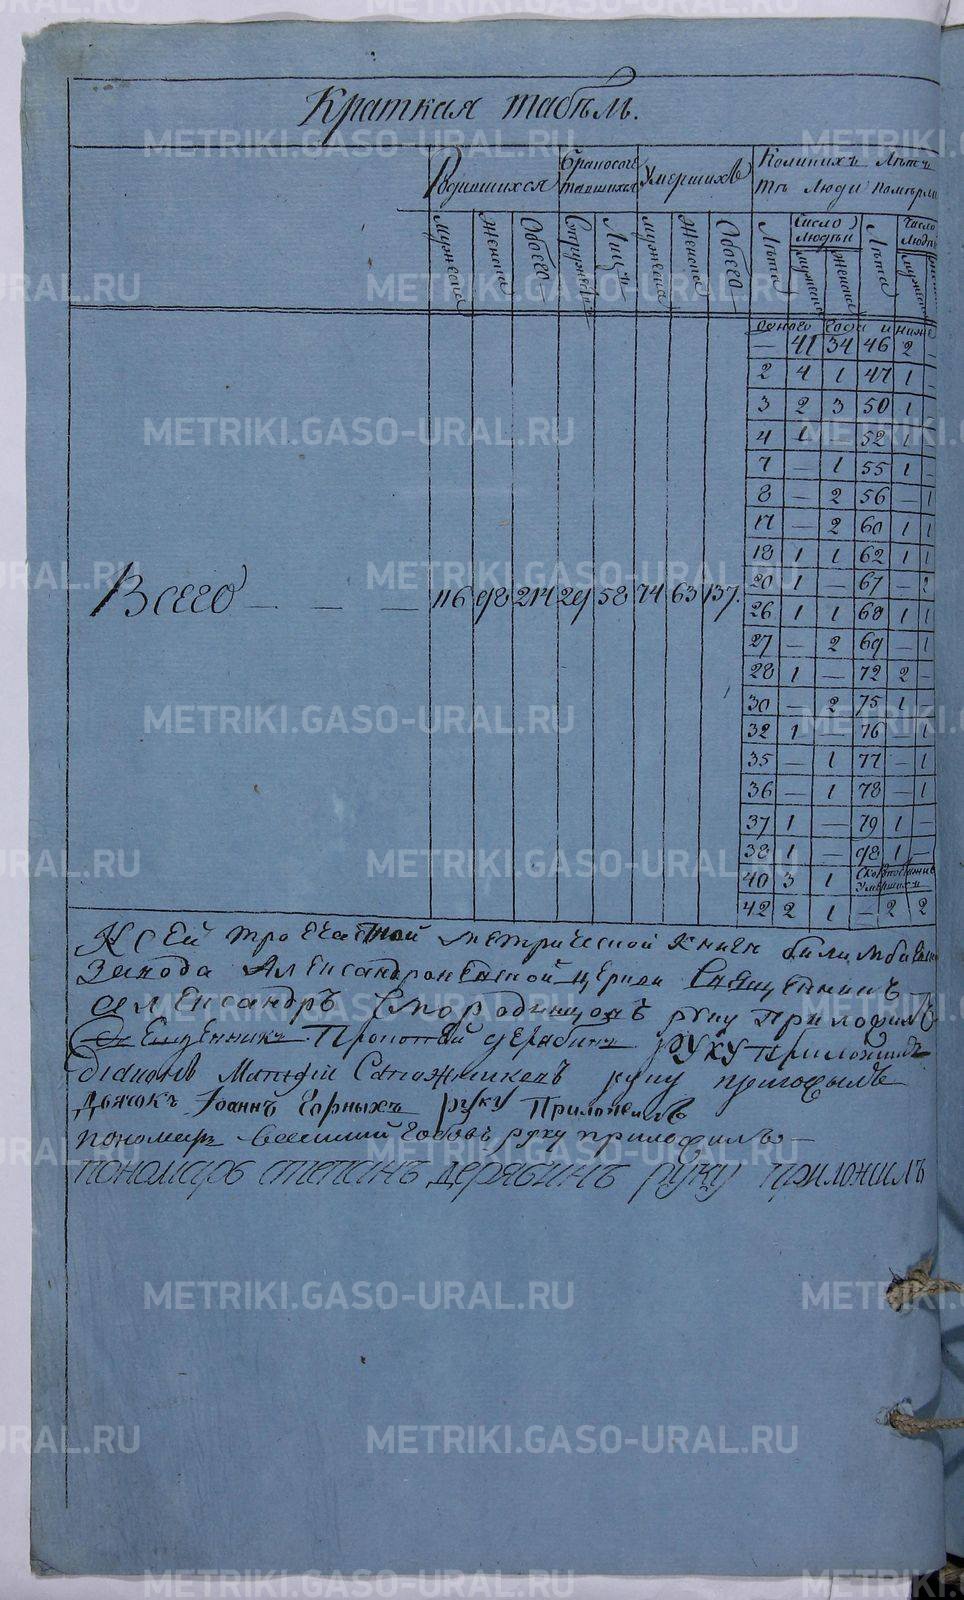 Краткая табѣль.
Родившихся
Умершихъ
Коликихъ Лѣтъ
тѣ люди померли
Мужеска Женска Обоего Лицъ Мужеска Женска Обоего Лѣта Число людей Мужеска Женска Лѣта Число людей
одного года и ниже
— 41 34 46 2 —
2 4 1 47 1 —
3 2 3 50 1 —
4 1 52 1 —
7 — 1 55 1 —
8 — 2 56 — 1
17 — 2 60 1 1
18 1 1 62 1 1
20 1 — 67 — 2
Всего — — — 116 98 214 29 58 74 63 137.
26 1 1 68 1 1
27 — 2 69 — 1
28 1 — 72 2 —
30 — 2 75 1 —
32 1 — 76 — 1
35 — 1 77 — 1
36 — 1 78 — 1
37 1 — 79 1 —
38 1 — 98 1 —
40 3 1
Умершихъ
42 2 1 — 2 2
К сей троечастной метрической книги
завода церкви Священникъ
Александръ Смородинцовъ руку приложилъ
Священникъ руку приложилъ
Сапожниковъ руку приложилъ
Дьячокъ Іоаннъ Черныхъ руку Приложилъ
пономарь руку приложилъ
пономарь степанъ дерябинъ руку приложилъ
METRIKI.GASO-URAL.RU